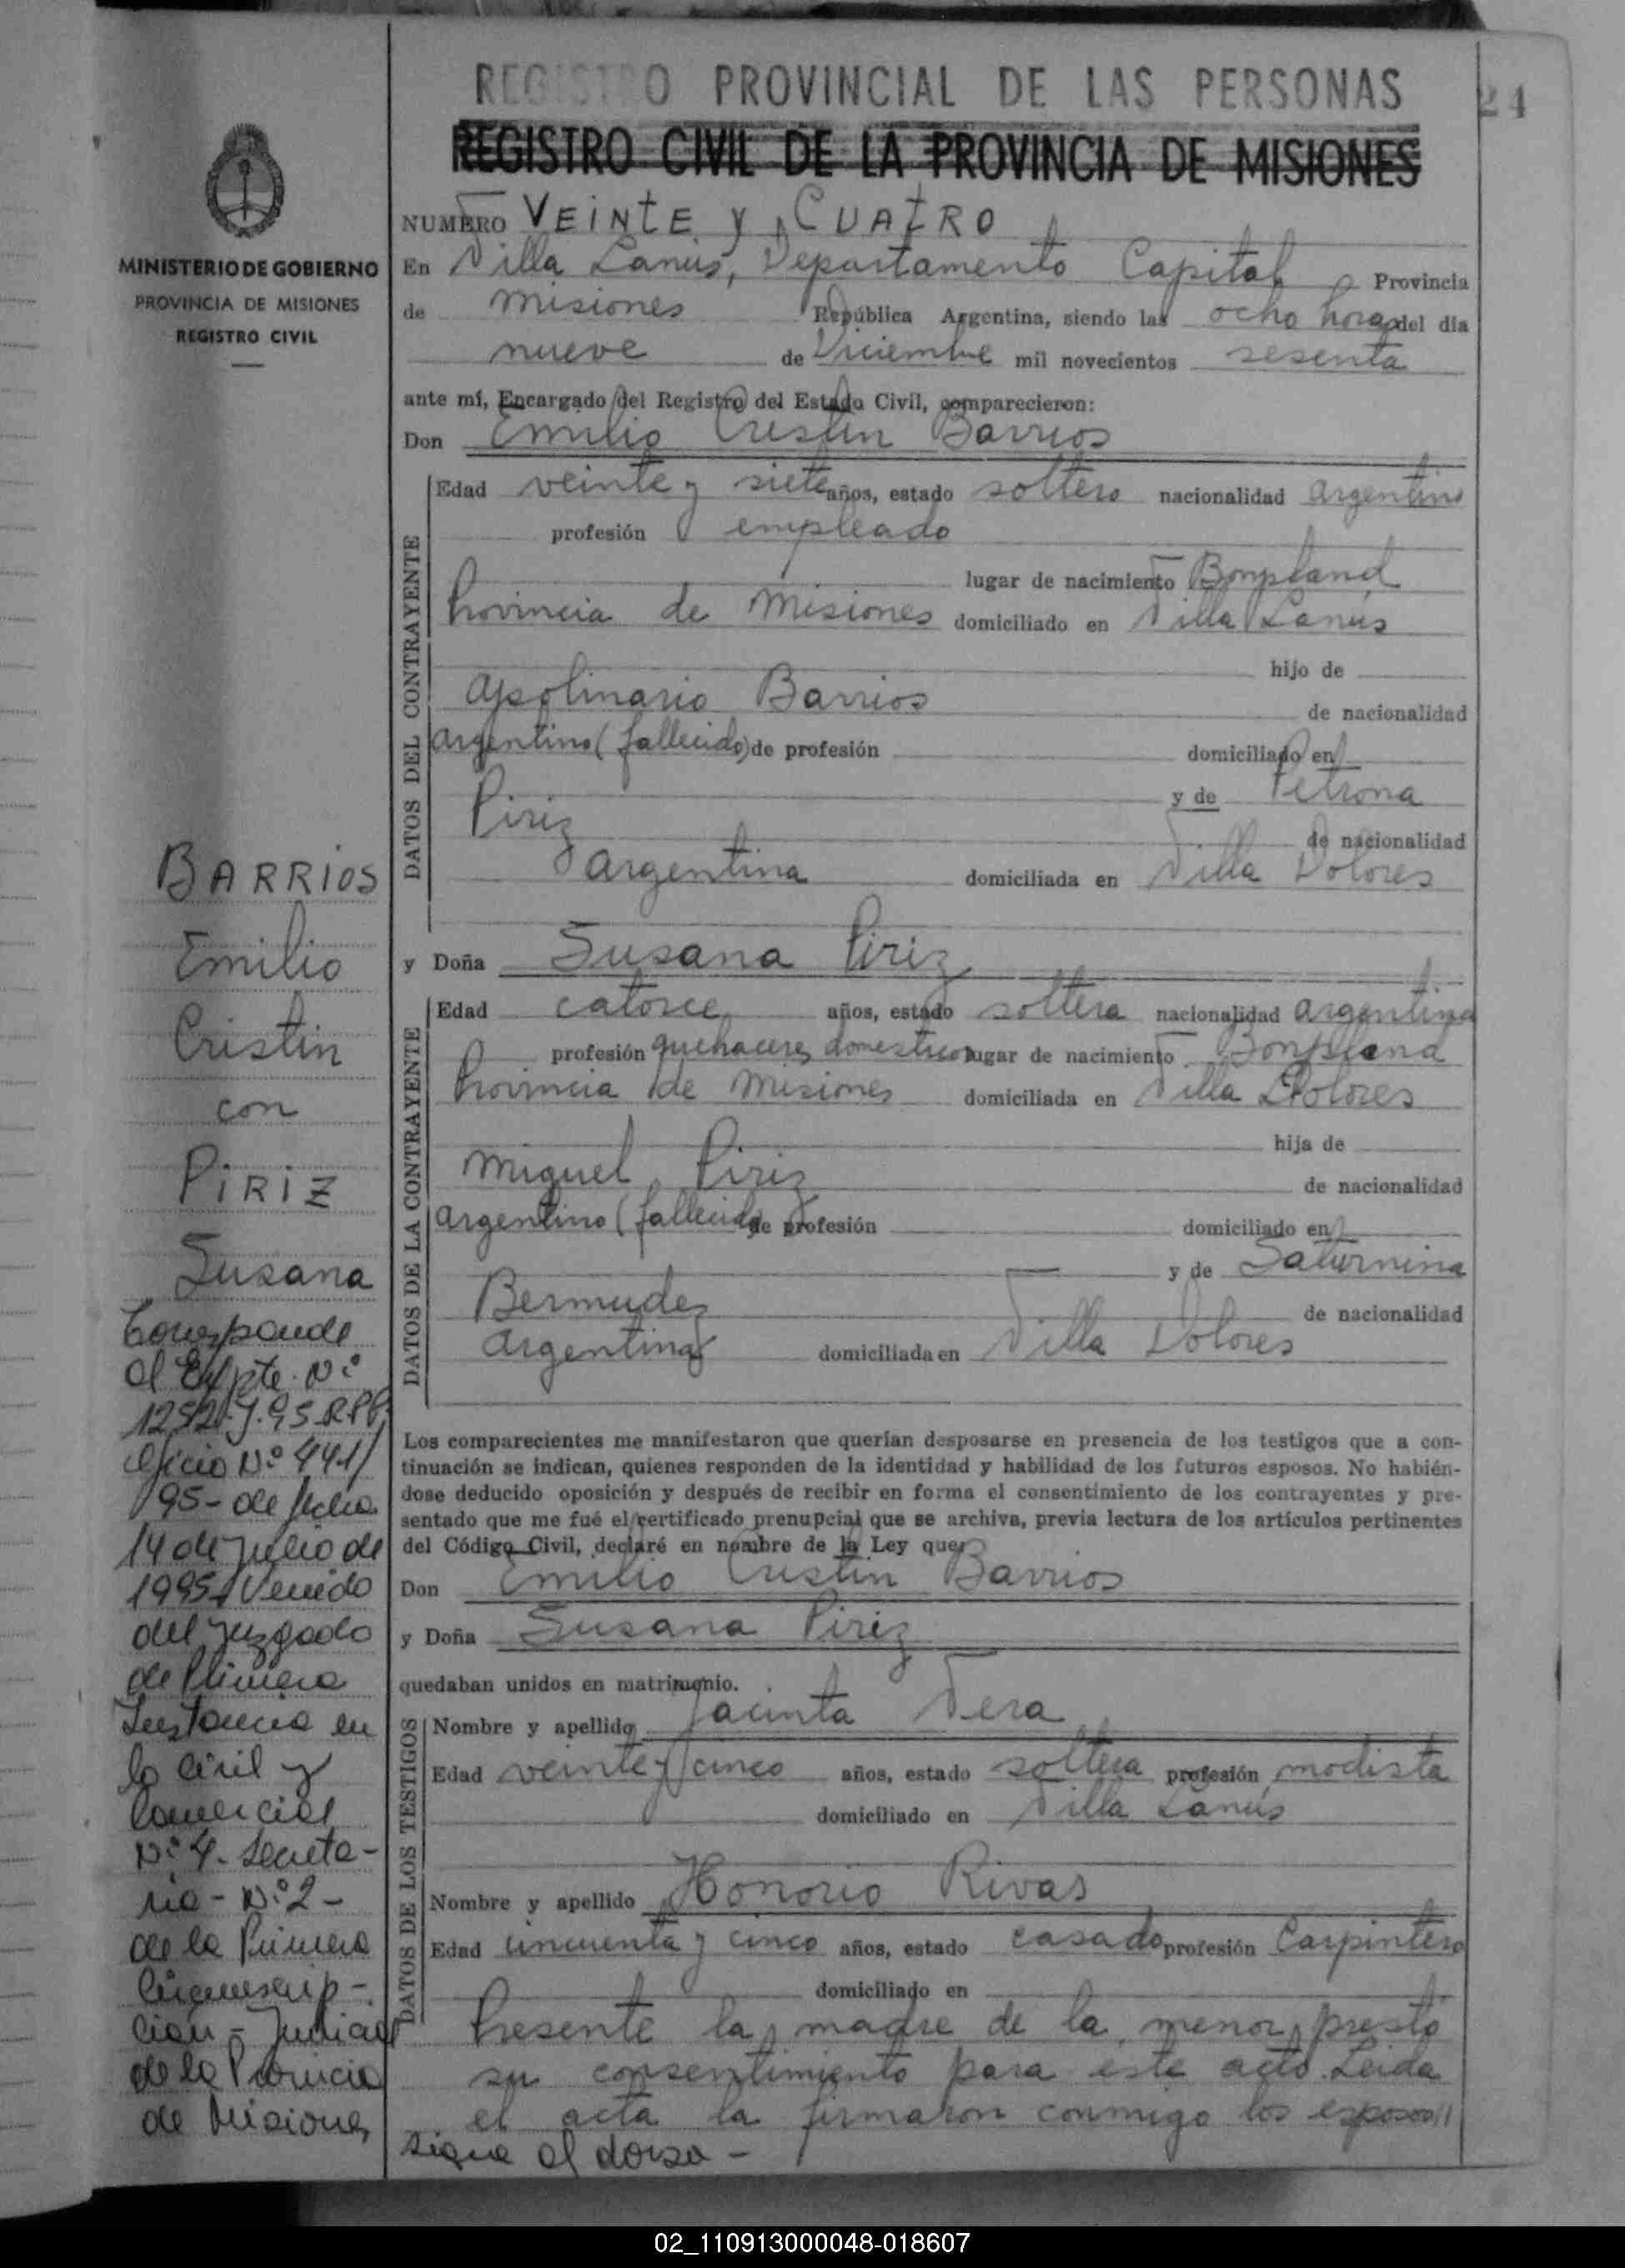 REGISTRO PROVINCIAL DE LAS PERSONAS
24
REGISTRO CIVIL DE LA PROVINCIA DE MISIONES
MINISTERIO DE GOBIERNO
PROVINCIA DE MISIONES
REGISTRO CIVIL
NUMERO VEINTE Y CUATRO
En Villa Lanús, Departamento Capital Provincia
de Misiones República Argentina, siendo las ocho horas del día
nueve de Diciembre mil novecientos sesenta
ante mí, Encargado del Registro del Estado Civil, comparecieron:
Don Emilio Cristin Barrios
DATOS DEL CONTRAYENTE
Edad veinte y siete años, estado soltero nacionalidad argentino
profesión empleado
lugar de nacimiento Bonpland
Provincia de Misiones domiciliado en Villa Lanús
hijo de
Apolinario Barrios
de nacionalidad
argentino (fallecido) de profesión domiciliado en
y de Petrona
Piriz
de nacionalidad
argentina domiciliada en Villa Dolores
y Doña Susana Piriz
DATOS DE LA CONTRAYENTE
Edad catorce años, estado soltera nacionalidad argentina
profesión quehaceres domesticos lugar de nacimiento Bonpland
Provincia de Misiones domiciliada en Villa Dolores
hija de
Miguel Piriz
de nacionalidad
argentino (fallecido) de profesión domiciliado en
y de Saturnina
Bermudez
de nacionalidad
argentina domiciliada en Villa Dolores
Los comparecientes me manifestaron que querían desposarse en presencia de los testigos que a con-
tinuación se indican, quienes responden de la identidad y habilidad de los futuros esposos. No habién-
dose deducido oposición y después de recibir en forma el consentimiento de los contrayentes y pre-
sentado que me fué el certificado prenupcial que se archiva, previa lectura de los artículos pertinentes
del Código Civil, declaré en nombre de la Ley que
Don Emilio Cristin Barrios
y Doña Susana Piriz
quedaban unidos en matrimonio.
DATOS DE LOS TESTIGOS
Nombre y apellido Jacinta Vera
Edad veinte y cinco años, estado soltera profesión modista
domiciliado en Villa Lanús
Nombre y apellido Honorio Rivas
Edad cincuenta y cinco años, estado casado profesión Carpintero
domiciliado en
Presente la madre de la menor, prestó
su consentimiento para este acto. Leida
el acta la firmaron conmigo los esposos//
sigue al dorso -
BARRIOS
Emilio
Cristin
con
PIRIZ
Susana
Corresponde
al Expte. Nº
95 RPP
Oficio Nº 441/
95 - de fecha
14 de Julio de
1995 Venido
del Juzgado
de Primera
Instancia en
lo Civil y
Comercial
Nº 4 - Secreta-
ria - Nº 2 -
de la Primera
Circunscrip-
cion - Judicial
de la Provincia
de Misiones
02_110913000048-018607